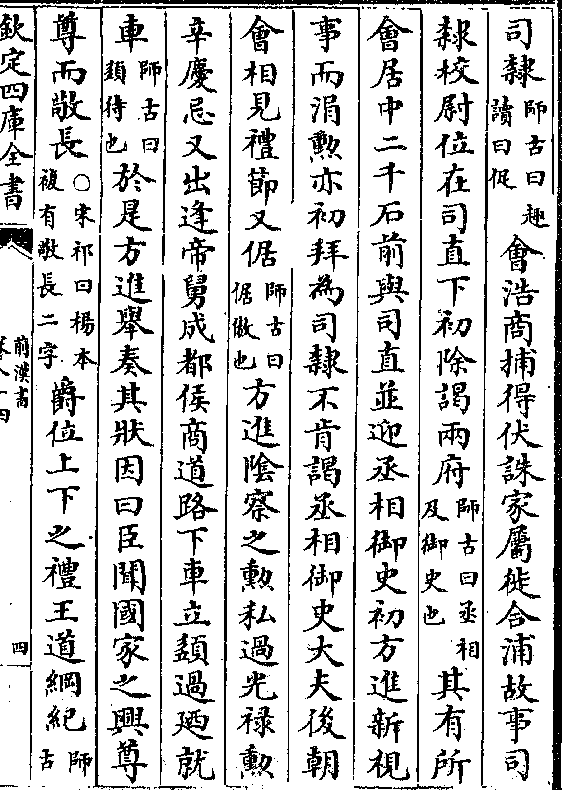 司隸師古曰趣讀曰促會浩商捕得伏誅家屬徙合浦故事司
隸校尉位在司直下初除謁兩府師古曰丞相及御史也其有所
會居中二千石前與司直並迎丞相御史初方進新視
事而涓勲亦初拜為司隸不肯謁丞相御史大夫後朝
會相見禮節又倨師古曰倨傲也方進陰察之勲私過光禄勲
辛慶忌又出逢帝舅成都侯商道路下車立䫉過廼就
車師古曰䫉待也於是方進舉奏其狀因曰臣聞國家之興尊
尊而敬長○宋祁曰楊本複有敬長二字爵位上下之禮王道綱紀師古
欽定四庫全書
前漢書
卷八十四
四